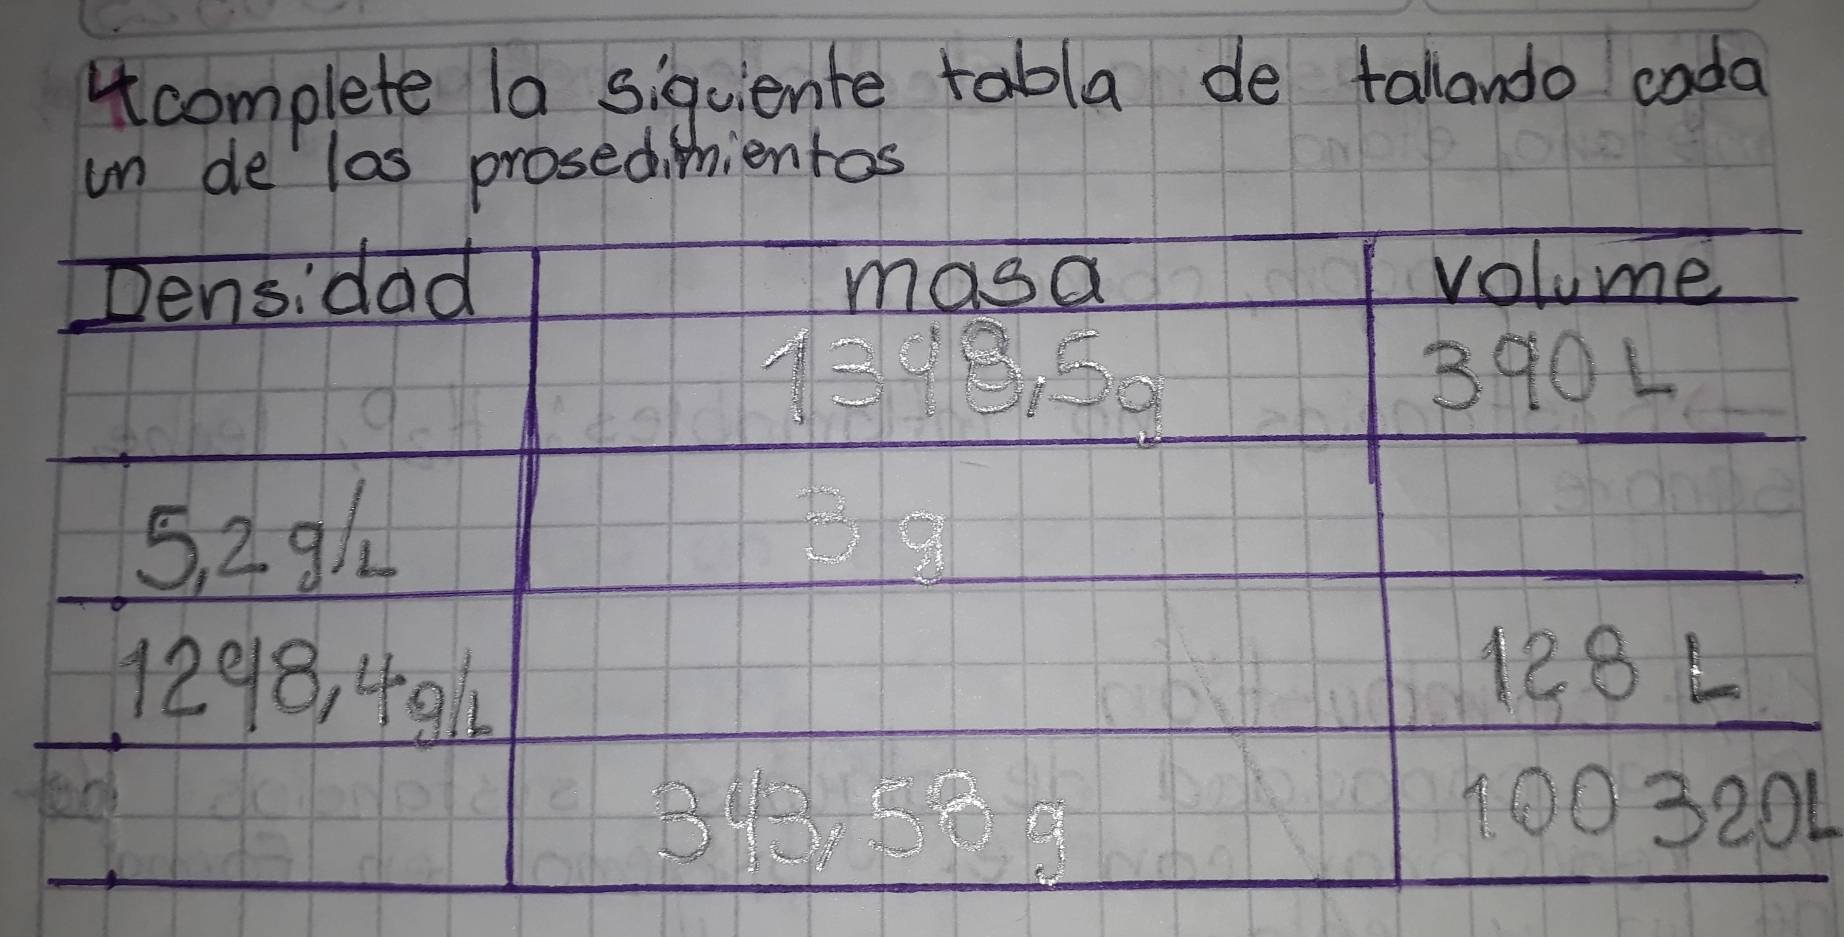 4 complete la siguiente tabla de tallando cada
un de los prosedimientos
Densidad masa volume
1398,5g 390 L
5,2 g/L 3 g
1298,4g/L 128 L
393,58 g 100320L